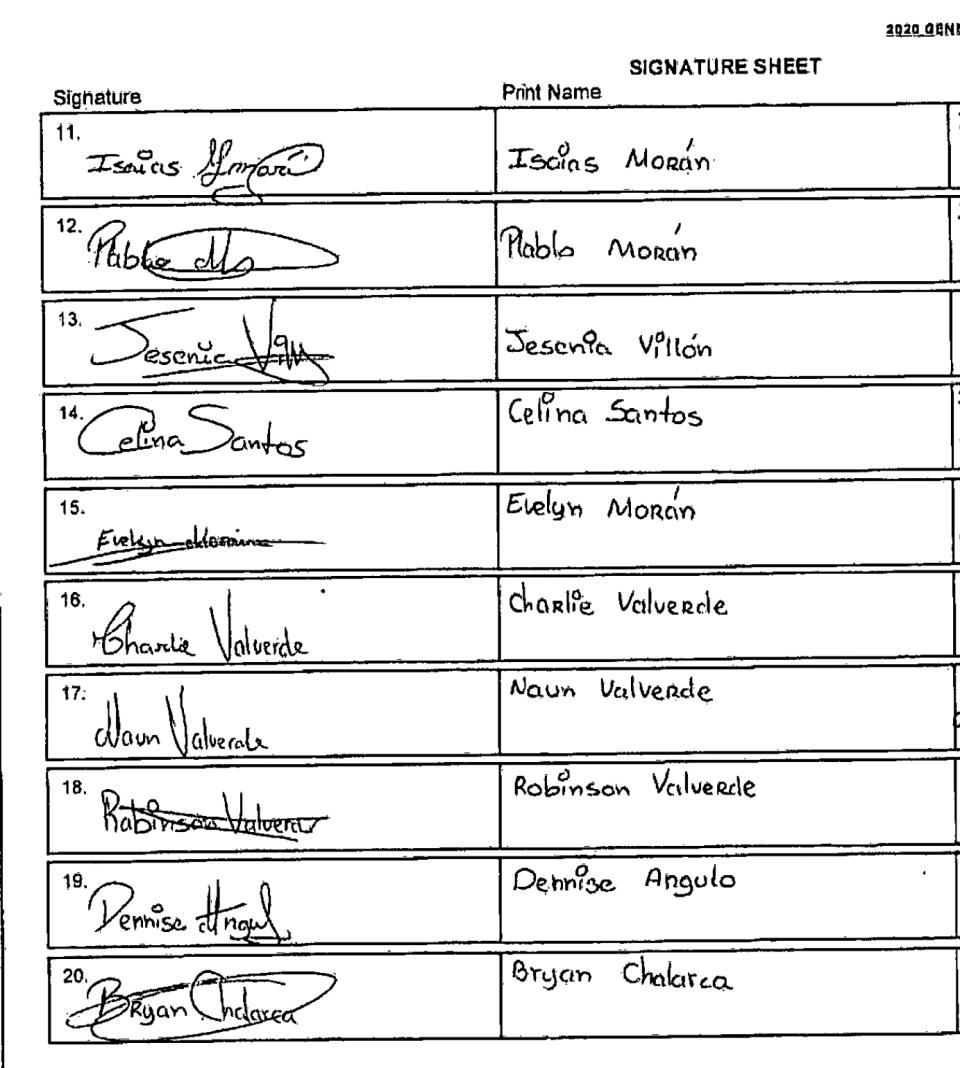 2020 GENE
SIGNATURE SHEET
Signature Print Name
11. Isaias Morán Isaias Morán
12. Pablo Mo Pablo Morán
13. Jesenia Vill Jesenia Villón
14. Celina Santos Celina Santos
15. Evelyn Morán Evelyn Morán
16. Charlie Valverde Charlie Valverde
17. Naun Valverde Naun Valverde
18. Robinson Valverde Robinson Valverde
19. Dennise Angul Dennise Angulo
20. Bryan Chalarca Bryan Chalarca